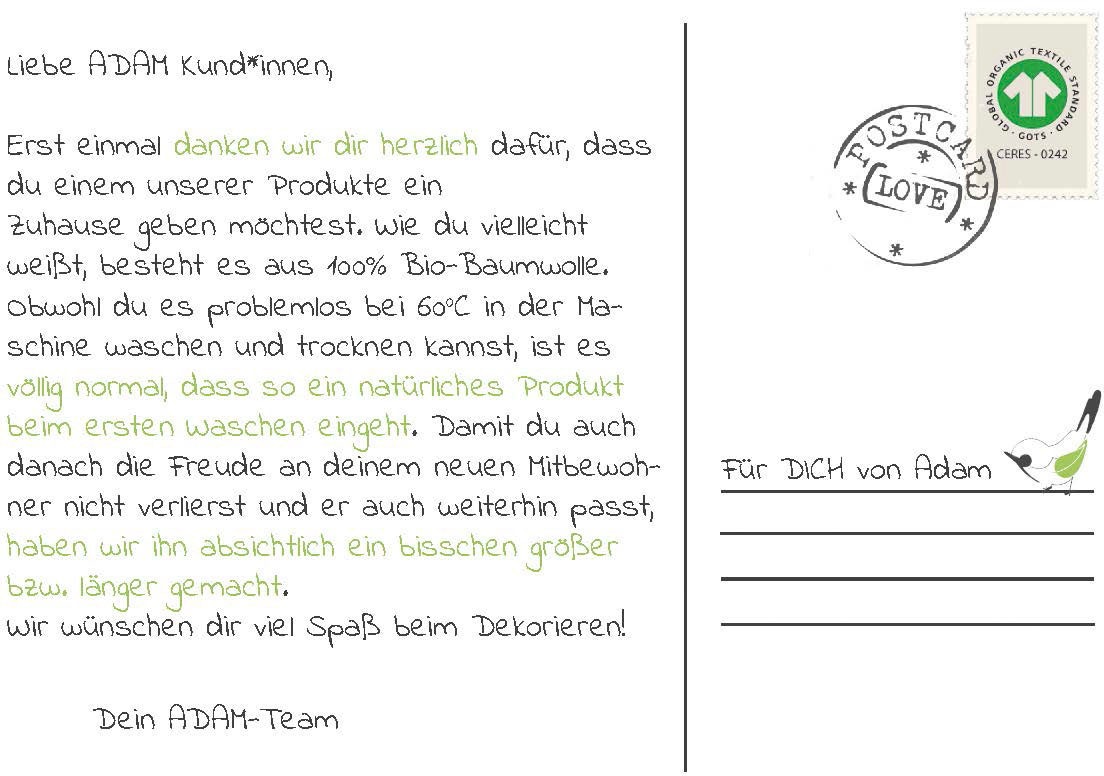 Liebe ADAM Kund*innen,
Erst einmal danken wir dir herzlich dafür, dass
du einem unserer Produkte ein
Zuhause geben möchtest. Wie du vielleicht
weißt, besteht es aus 100% Bio-Baumwolle.
Obwohl du es problemlos bei 60°C in der Ma-
schine waschen und trocknen kannst, ist es
völlig normal, dass so ein natürliches Produkt
beim ersten Waschen eingeht. Damit du auch
danach die Freude an deinem neuen Mitbewoh-
ner nicht verlierst und er auch weiterhin passt,
haben wir ihn absichtlich ein bisschen größer
bzw. länger gemacht.
Wir wünschen dir viel Spaß beim Dekorieren!
Dein ADAM-Team
GLOBAL ORGANIC TEXTILE STANDARD
· GOTS ·
CERES - 0242
POSTCARD
LOVE
Für DICH von Adam